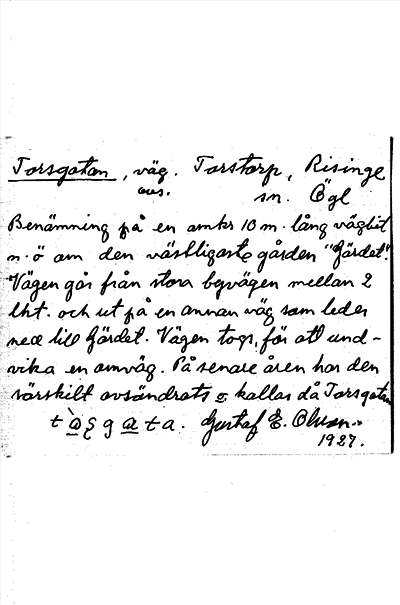 Torsgatan, väg. Torstorp, Risinge
avs. sn. Ögl
Benämning på en omkr 10 m. lång vägbit
n. ö om den västligaste gården "Gärdet".
Vägen går från stora byvägen mellan 2
lht. och ut på en annan väg som leder
ned till Gärdet. Vägen togs, för att und-
vika en omväg. På senare åren har den
särskilt avsöndrats o. kallas då Torsgatan
tàşgata. Gustaf E. Olsson.
1927.